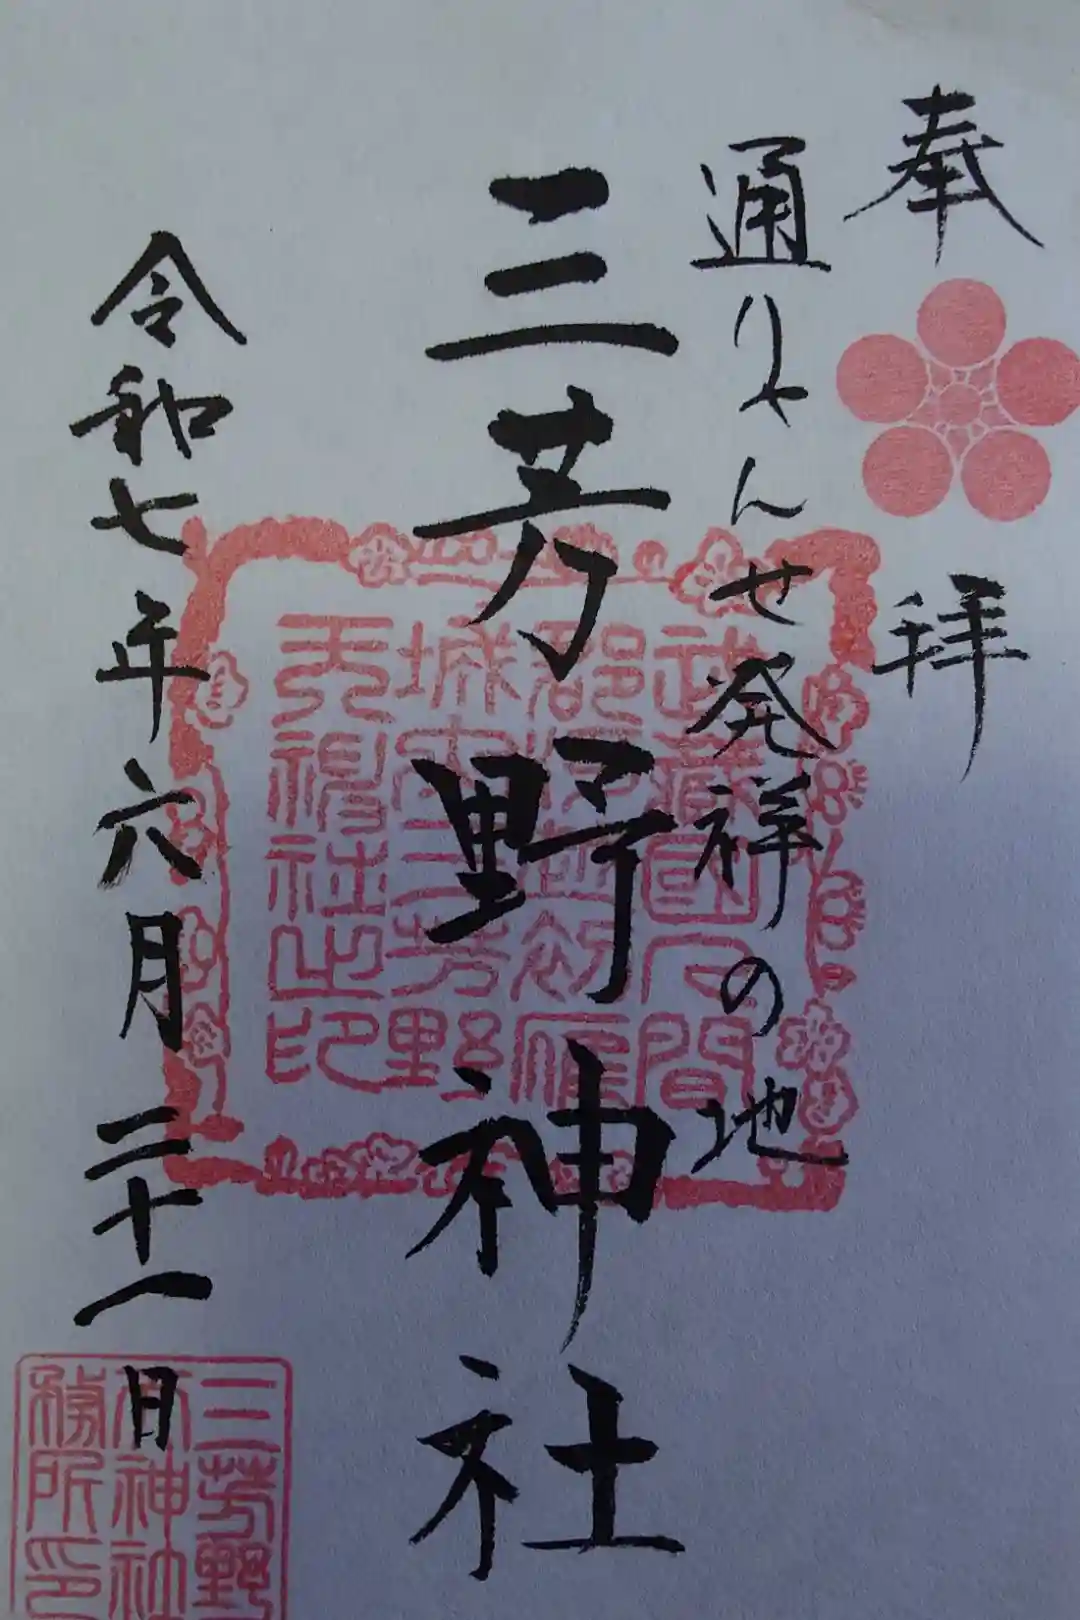 奉拝
通りゃんせ発祥の地
三芳野神社
令和七年六月二十一日
武蔵国入間
郡河越初雁
城内三芳野
天神社之印
三芳野
神社
務所印